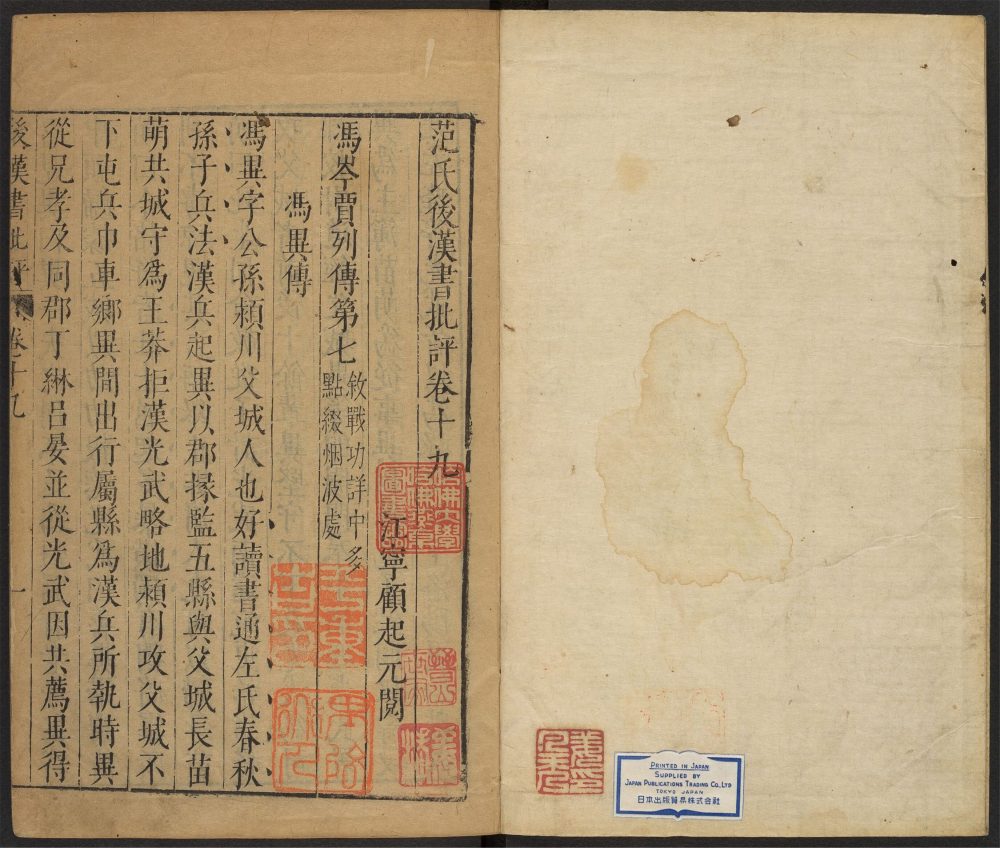 范氏後漢書批評卷十九
江寧顧起元閱
馮岑賈列傳第七
敘戰功詳中多
點綴烟波處
馮異傳
馮異字公孫潁川父城人也好讀書通左氏春秋
孫子兵法漢兵起異以郡掾監五縣與父城長苗
萌共城守為王莽拒漢光武略地潁川攻父城不
下屯兵巾車鄉異間出行屬縣為漢兵所執時異
從兄孝及同郡丁綝呂晏並從光武因共薦異得
後漢書批評
卷十九
一
哈佛大學
哈佛燕京
圖書
PRINTED IN JAPAN
SUPPLIED BY
JAPAN PUBLICATIONS TRADING CO., LTD
TOKYO JAPAN
日本出版貿易株式会社